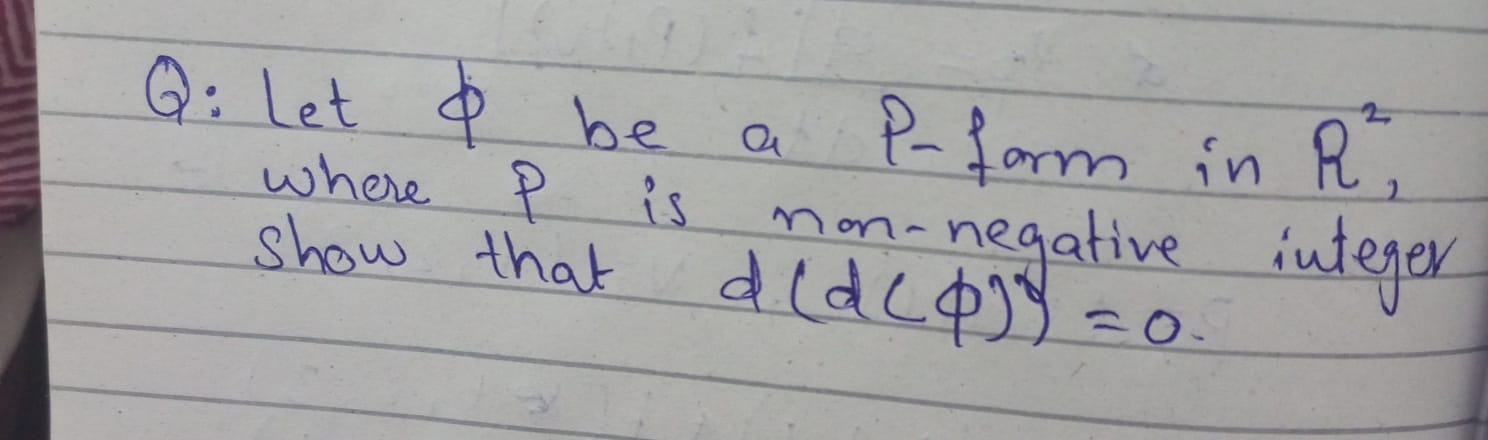 Q: Let ϕ be a P-form in R²,
where P is non-negative integer
show that d(d(ϕ)) = 0.